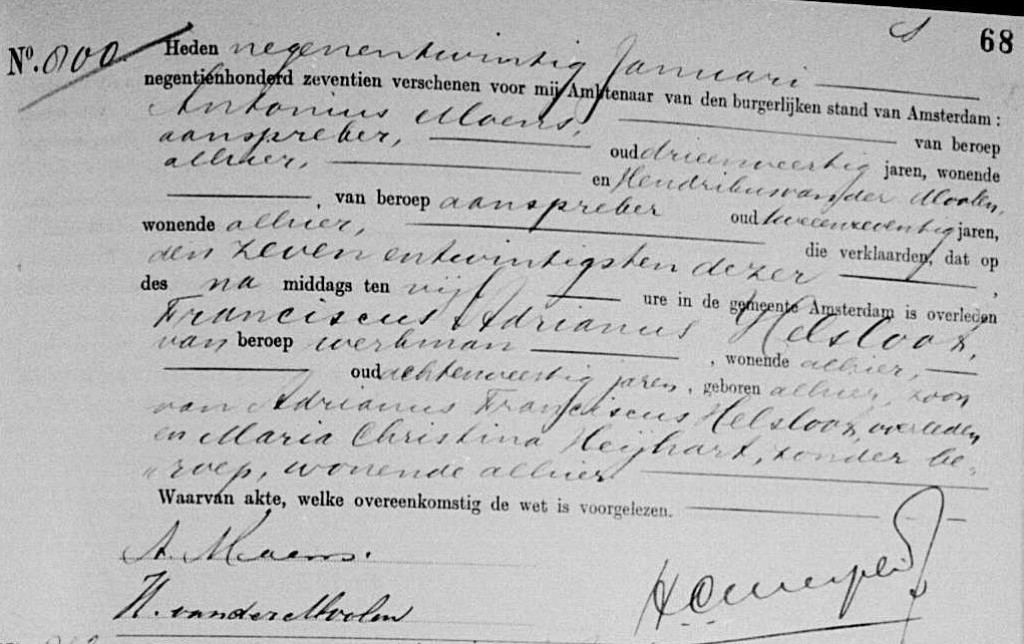 S 68
No. 800 Heden negenentwintig Januari
negentienhonderd zeventien verschenen voor mij Ambtenaar van den burgerlijken stand van Amsterdam :
Antonius Moens, van beroep
aanspreker, oud drieenveertig jaren, wonende
alhier, en Hendrikus van der Moolen,
, van beroep aanspreker oud tweeenzeventig jaren,
wonende alhier, die verklaarden, dat op
den zeven entwintigsten dezer ,
des na middags ten vijf ure in de gemeente Amsterdam is overleden
Franciscus Adrianus Helsloot,
van beroep werkman , wonende alhier,
oud achtenveertig jaren, geboren alhier, zoon
van Adrianus Franciscus Helsloot, overleden
en Maria Christina Heijhart, zonder be-
"roep, wonende alhier
Waarvan akte, welke overeenkomstig de wet is voorgelezen.
A. Moens.
H. van der Moolen